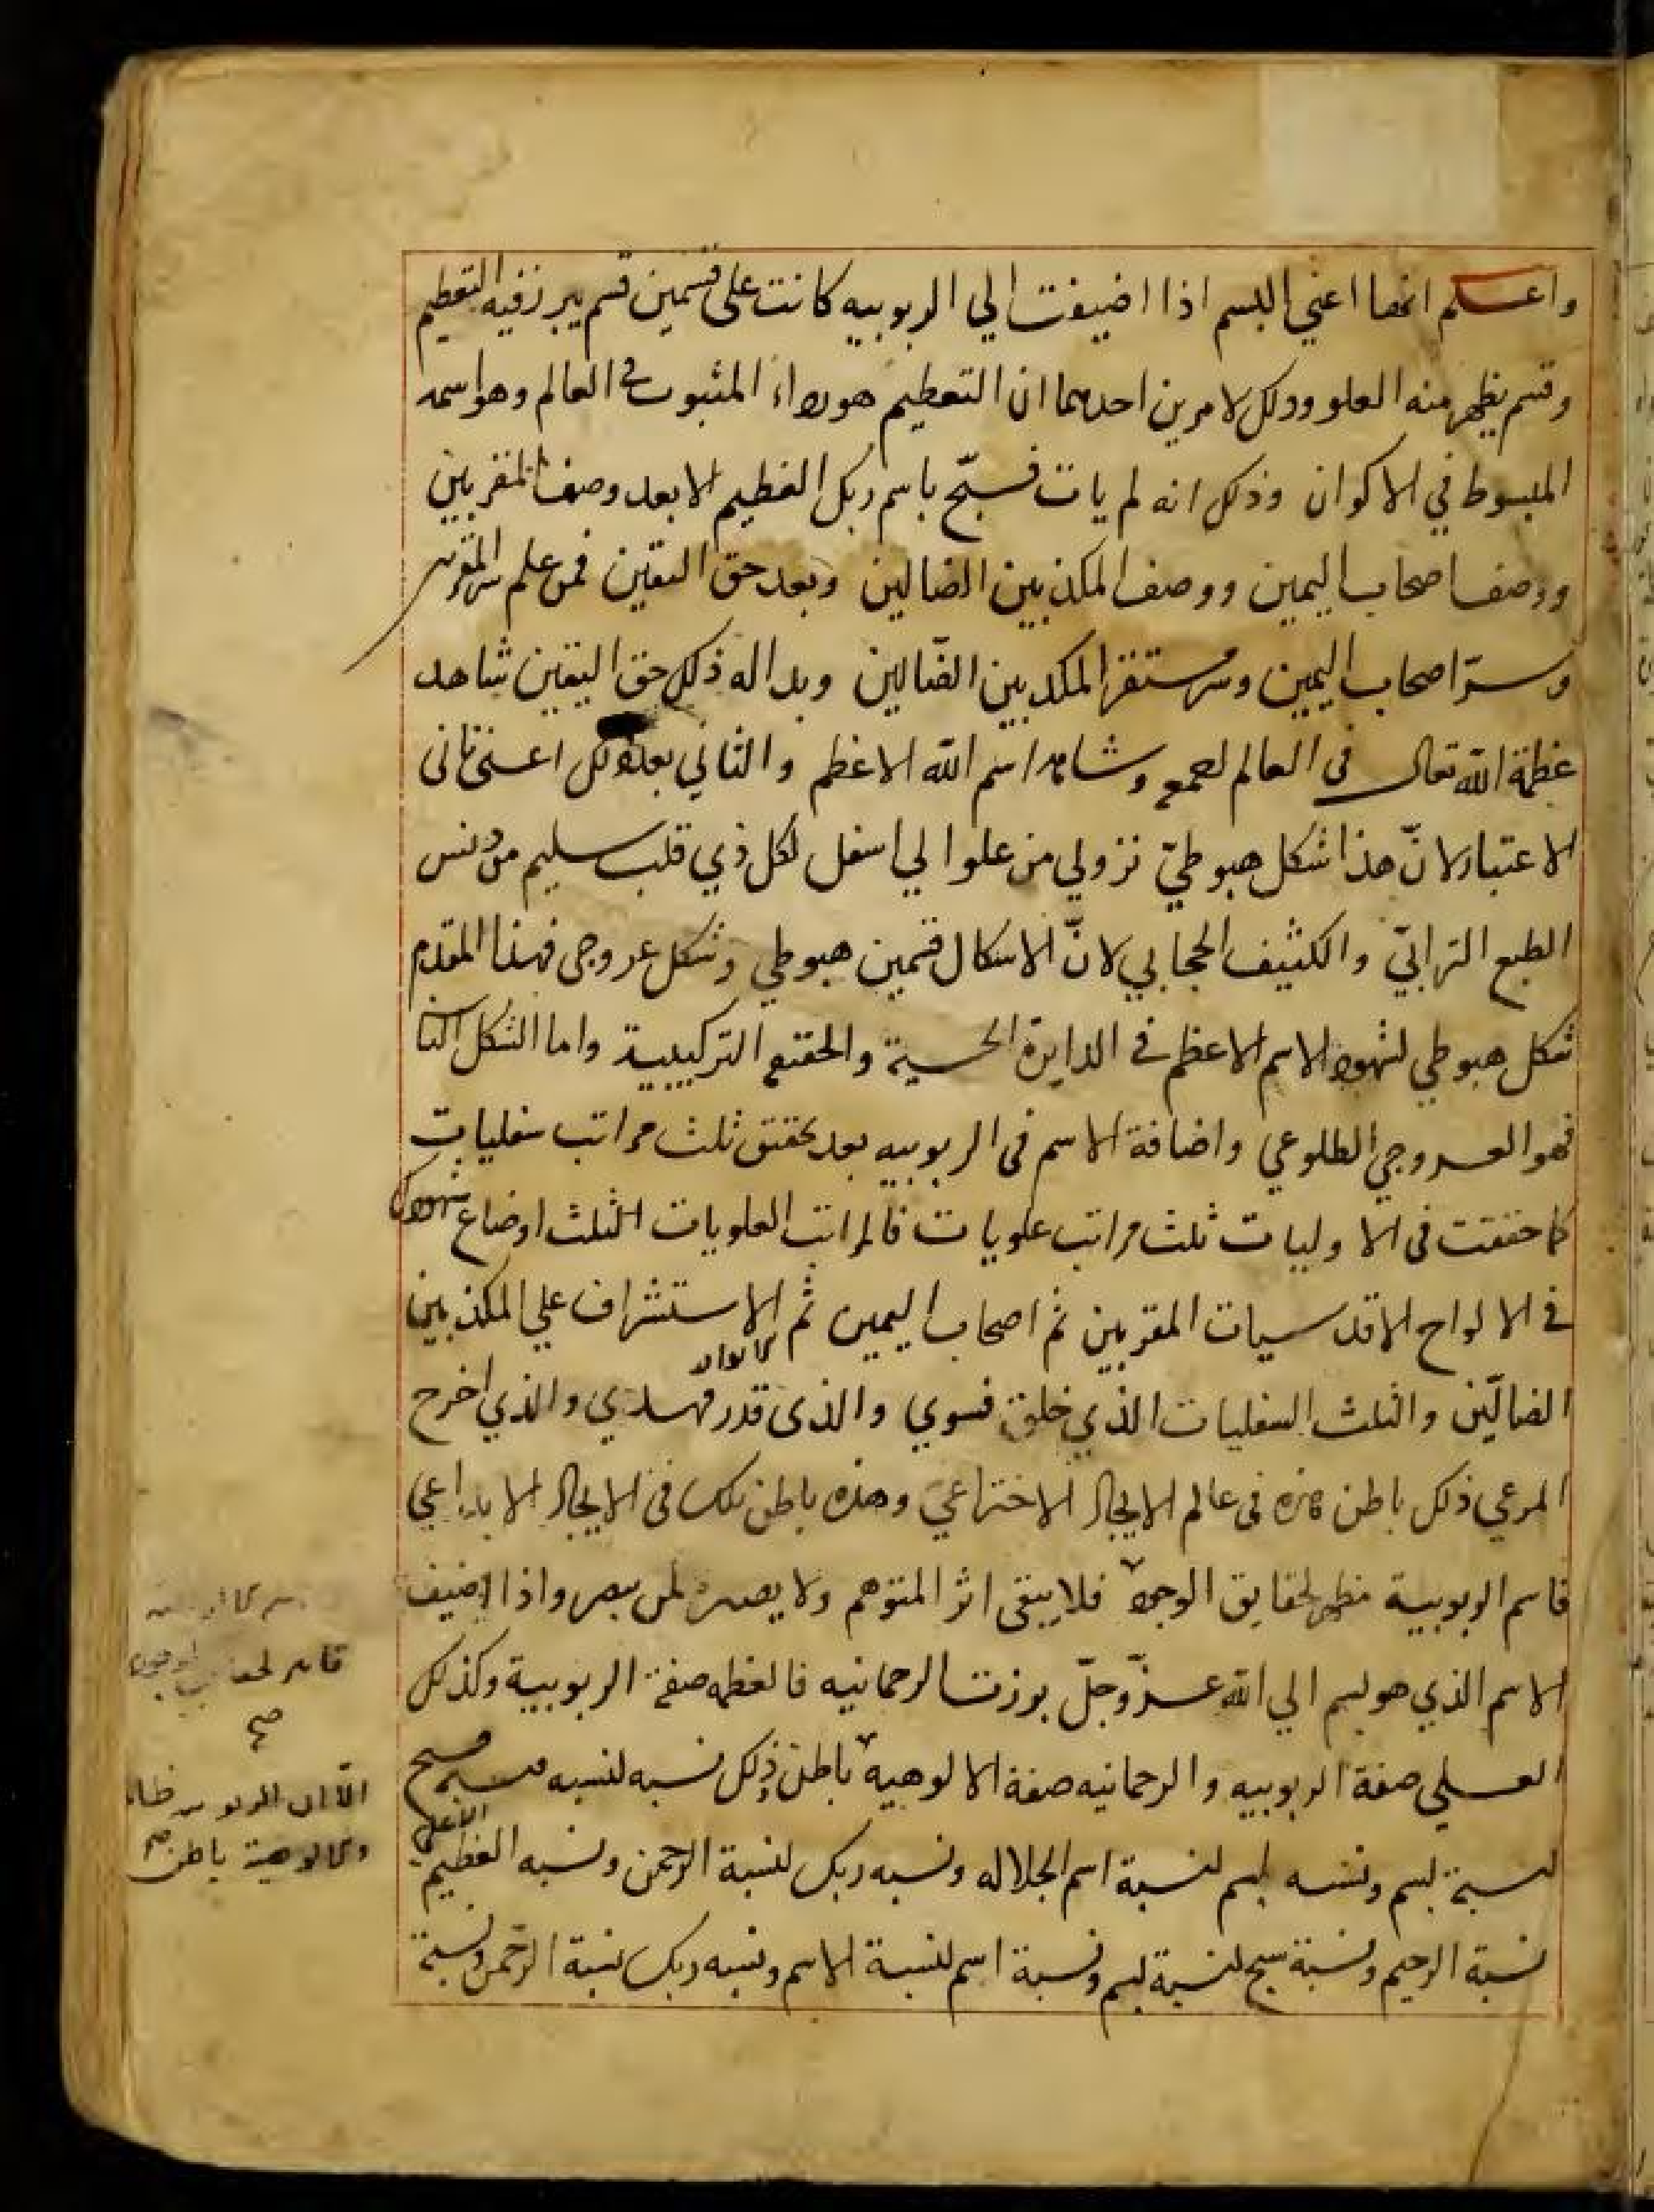 واعلم انها اعني البسم اذا اضيفت الي الربوبيه كانت علي قسمين قسم يبرز فيه التعظيم
وقسم يظهر منه العلو وذلك لامرين احدهما ان التعظيم هو رداء المثبوت في العالم وهو اسمه
المبسوط في الاكوان وذلك انه لم يات فسبّح باسم ربك العظيم الا بعد وصف المقربين
ووصف اصحاب اليمين ووصف المكذبين الضالين وبعد حق اليقين فمن علم سر المقربين
وسرّ اصحاب اليمين وسر مستقر المكذبين الضّالين وبدا له ذلك حق اليقين شاهد
عظمة اللّه تعالى في العالم اجمع وشاهد اسم اللّه الاعظم والثاني بعد ذلك اعني ثاني
الاعتبار لانّ هذا شكل هبوطيّ نزولي من علو الي اسفل لكل ذي قلب سليم من دنس
الطبع الترابيّ والكثيف الحجابي لانّ الاشكال قسمين هبوطي وشكل عروجي فهذا المقدم
شكل هبوطي لشهود الاسم الاعظم في الدايرة الحسية والحقتع التركيبية واما الشكل الثا
فهو العروجي الطلوعي واضافة الاسم في الربوبيه بعد تحقق ثلث مراتب سفليات
كما حققت في الاوليات ثلث مراتب علويات فالمراتب العلويات الثلث اوضاع شهودك
في الالواح الاقدسيات المقربين ثم اصحاب اليمين ثم الاستشراف علي المكذبين
الضالّين والثلث السفليات الذي خلق فسوي والذي قدر فهدي والذي اخرج
المرعي ذلك باطن هذه في عالم الايجاد الاختراعيّ وهذه باطن تلك في الايجاد الابداعي
فاسم الربوبية مظهر لحقايق الوجود فلا يبقي اثر المتوهم ولا يصره لمن يبصر واذا اضيف
الاسم الذي هو بسم الي اللّه عزّ وجلّ برزت الرحمانيه فالعظمه صفة الربوبية وكذلك
العلي صفة الربوبيه والرحمانيه صفة الالوهيه باطن ذلك نسبه لنسبه فسبح
لنسبة بسم ونسبه بسم لنسبة اسم الجلاله ونسبه ربك لنسبة الرحمن ونسبه العظيم
الاعلي
نسبة الرحيم ونسبة سبح لنسبة بسم ونسبة اسم لنسبة الاسم ونسبه ربك نسبة الرّحمن ونسبة
صح
الّا ان الربوبيه
والالوهية باطن